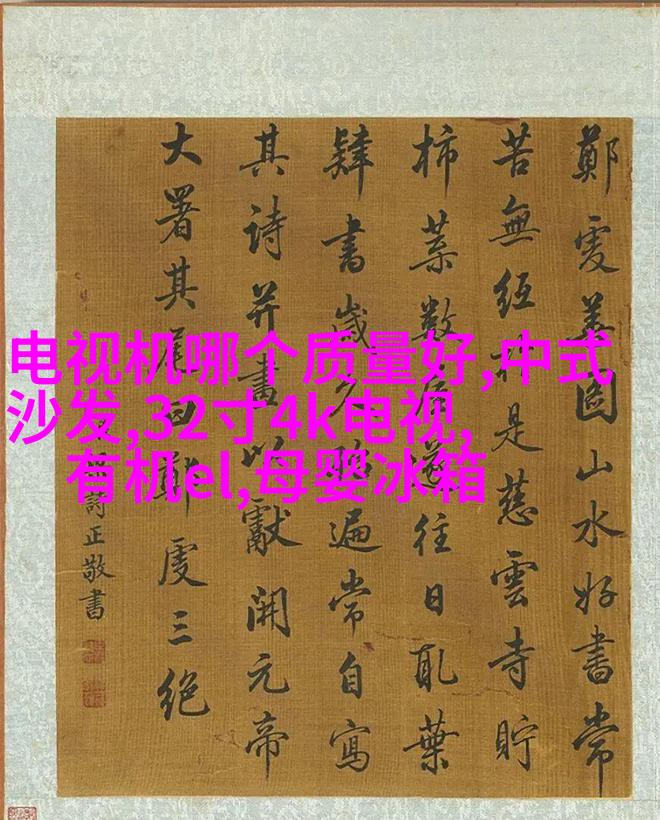 电视机哪个质量好,中式
沙发,32寸4k电视,
有机el,母婴冰箱
鄭虔善圖山水好書常
苦無紙於是慈雲寺貯
柿葉數屋遂往日取葉
肄書歲久殆遍常自寫
其詩并畫以獻開元帝
大署其尾曰鄭虔三絕
詩正敬書